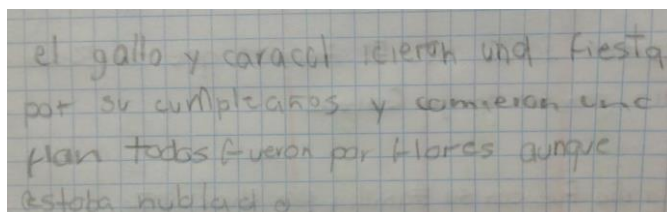 el gallo y caracol icieron una fiesta
por su cumpleaños y comieron una
flan todos fueron por flores aunque
estaba nublado